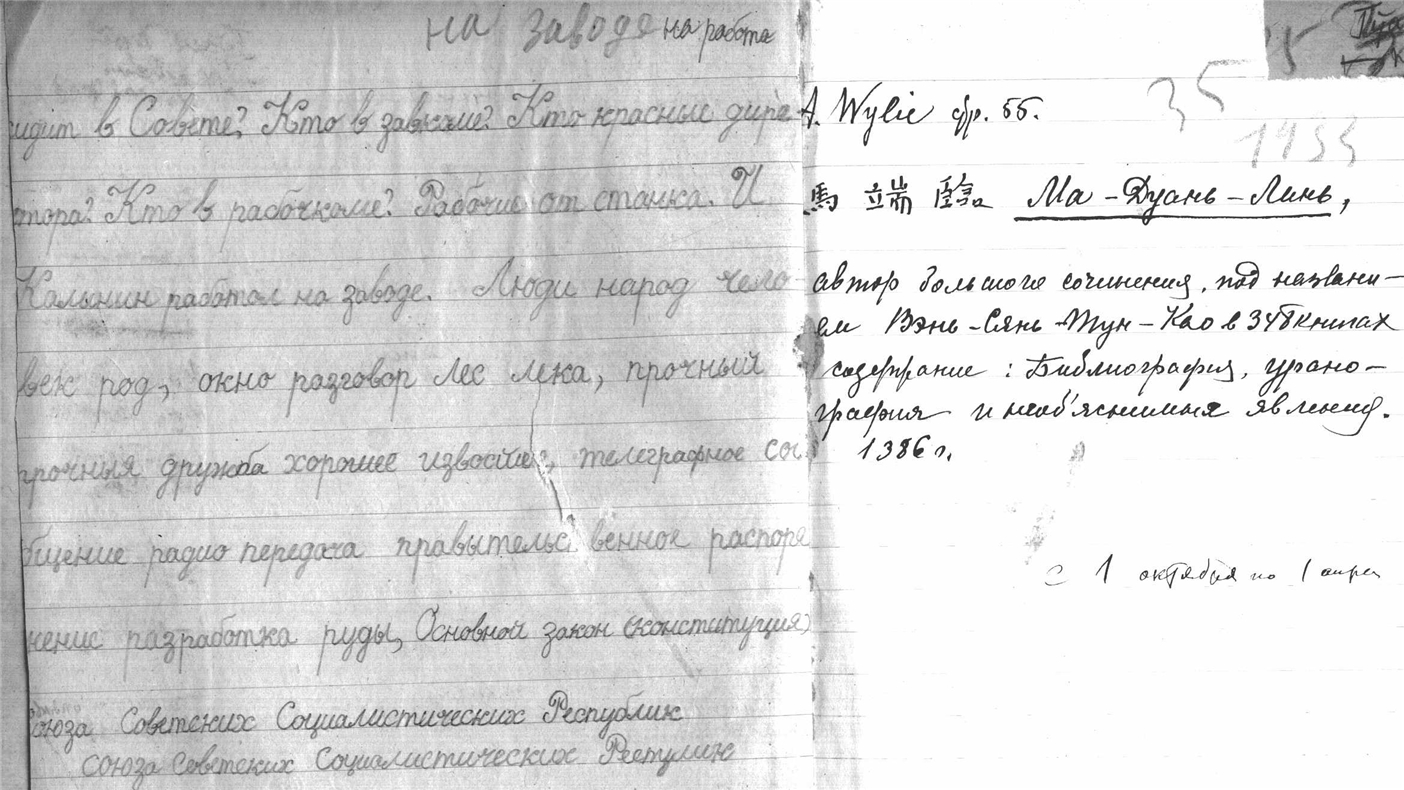 на заводе на работа
сидит в Совете? Кто в завкоме? Кто красные дире
ктора? Кто в рабочкоме? Рабочие от станка. И
Калынин работал на заводе. Люди народ чело
век род, окно разговор лес лека, прочный
прочныя дружба хорошее извостие, телеграфное соо
бщение радио передача правытельственное распоря
жение разработка руды, Основной закон (конституция)
Союза Советских Социалистических Республик
союза советских Социалистических Рестулик
35
1935
A. Wylie стр. 55.
馬 端 臨 Ма-Дуань-Линь,
автор большого сочинения, под названи-
ем Вэнь-Сянь-Тун-Као в 348 книгах
содержание: Библиография, урано-
графия и необ'яснимыя явления.
1386 г.
с 1 октября по 1 апре